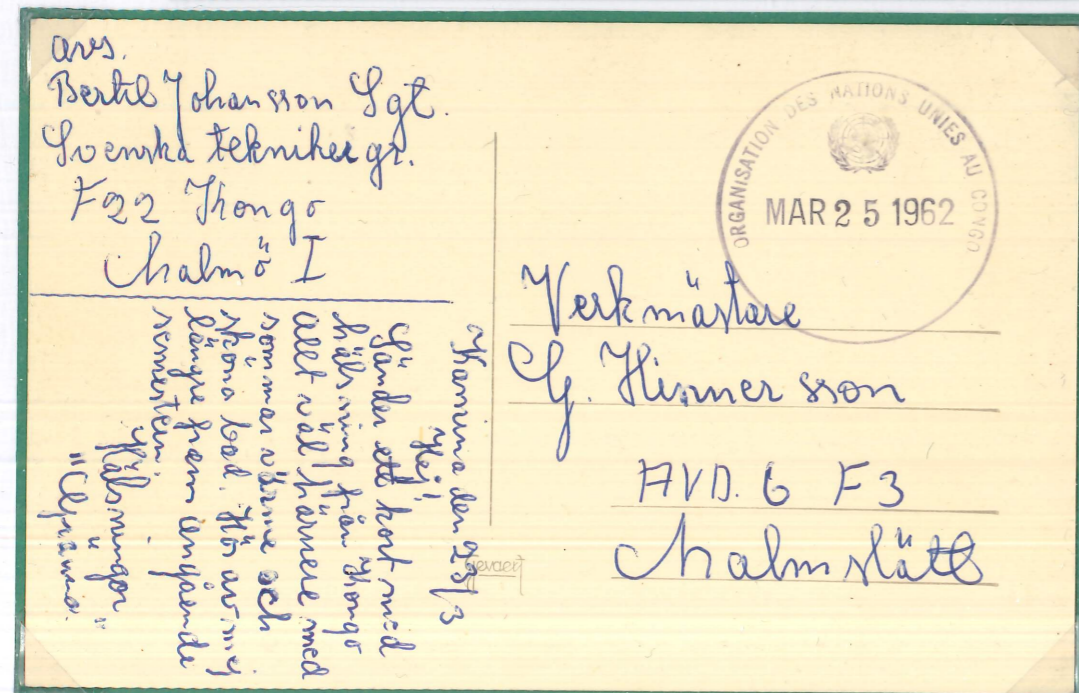 avs.
Bertil Johansson Sgt.
Svenska teknikergr.
F22 Kongo
Malmö I
Kamina den 23/3
Hej!
Sänder ett kort med
hälsning från Kongo
allt väl härnere med
sommarvärme och
sköna bad. Hör av mej
längre fram angående
semestern.
Hälsningar
ORGANISATION DES NATIONS UNIES AU CONGO
MAR 25 1962
Verkmästare
G. Hinnersson
AVD. 6 F3
Malmslätt
Gevaert